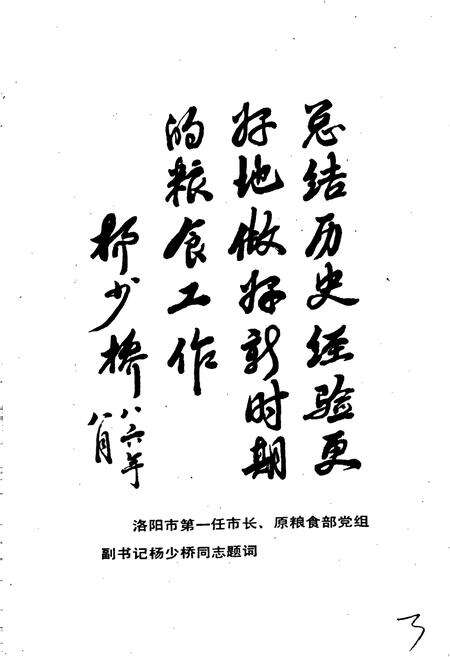 总结历史经验更
好地做好新时期
的粮食工作
杨少桥
八六年
八月
洛阳市第一任市长、原粮食部党组
副书记杨少桥同志题词
3